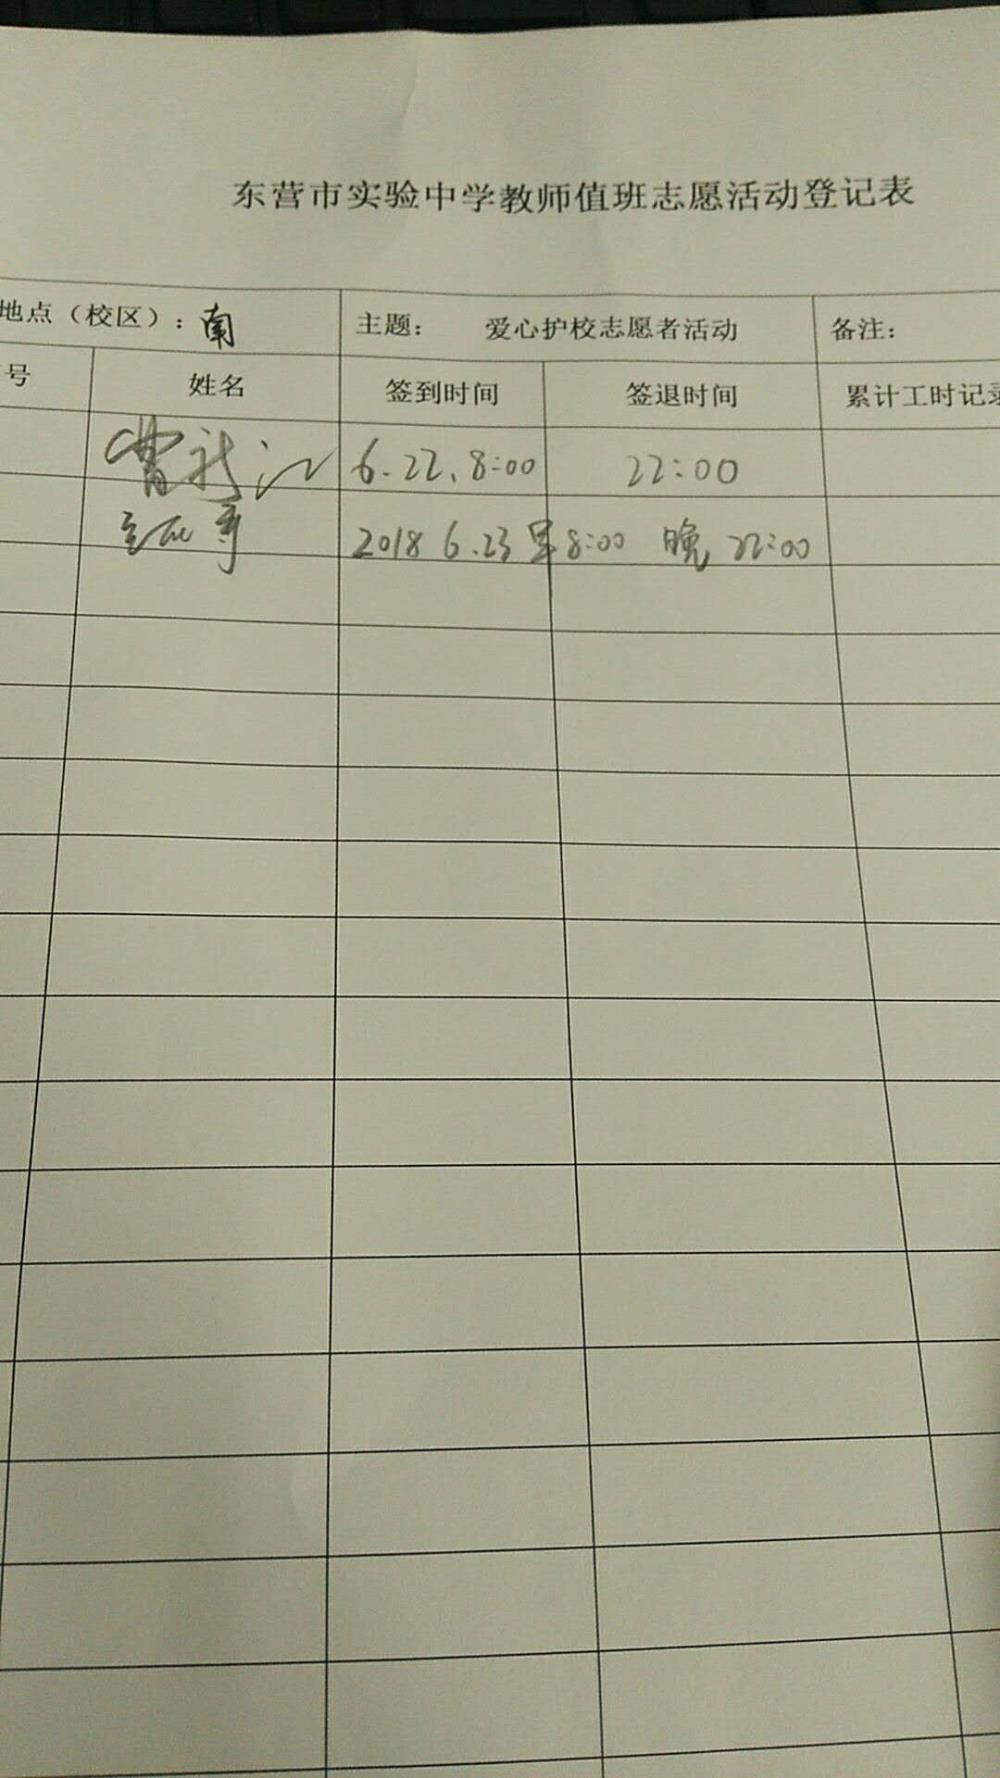 东营市实验中学教师值班志愿活动登记表
地点（校区）：南 主题： 爱心护校志愿者活动 备注：
号 姓名 签到时间 签退时间 累计工时记录
曹新江 6.22.8:00 22:00
2018 6.23 早8:00 晚 22:00